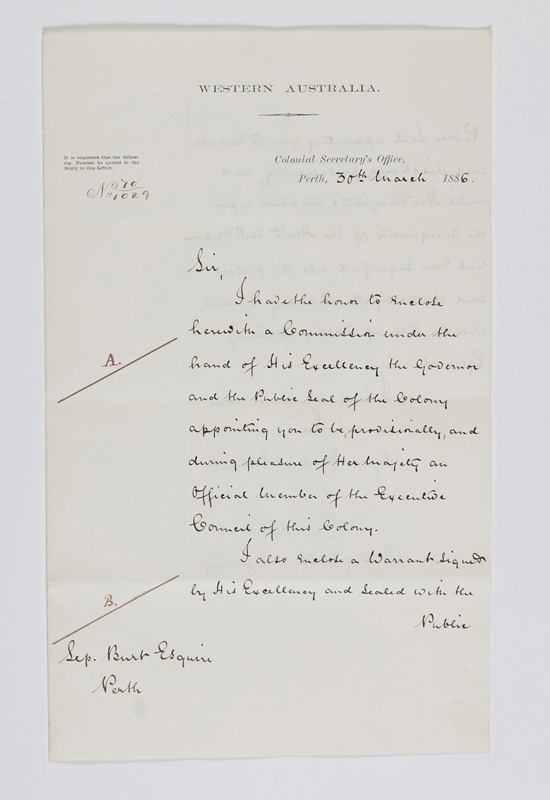 WESTERN AUSTRALIA.
It is requested that the follow-
ing Number be quoted in the
Reply to this Letter.
Colonial Secretary's Office,
No. 270/1029
Perth, 30th March 1886.
Sir,
I have the honor to enclose
herewith a Commission under the
A.
hand of His Excellency the Governor
and the Public Seal of the Colony
appointing you to be, provisionally, and
during pleasure of Her Majesty an
Official Member of the Executive
Council of this Colony.
I also enclose a Warrant signed
B.
by His Excellency and sealed with the
Public
Sep. Burt Esquire
Perth